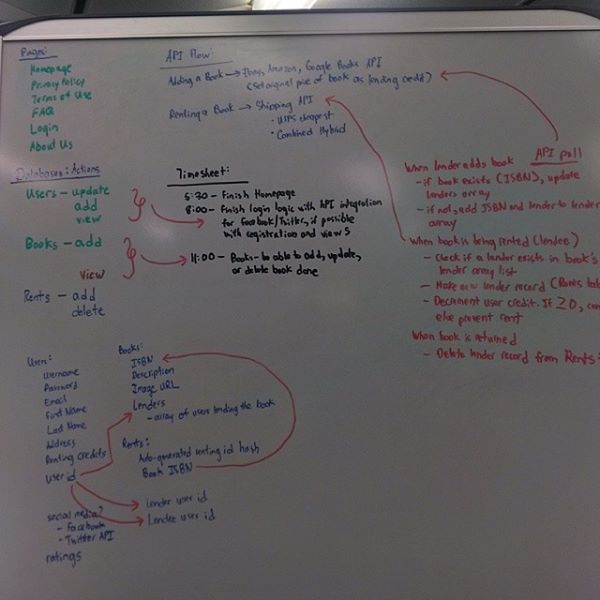 Pages:
Homepage
Privacy Policy
Terms of Use
FAQ
Login
About Us
API Flow:
Adding a Book → Ebay, Amazon, Google Books API
(Set original price of book as lending credit)
Renting a Book → Shipping API
• USPS cheapest
• Combined Hybrid
Databases: Actions
Users – update
add
view
Books – add
view
Rents – add
delete
Timesheet:
5:30 – Finish Homepage
8:00 – Finish login logic with API integration
for Facebook/Twitter, if possible
with registration and views
11:00 – Books – to able to add, update,
or delete book done
API pull
When lender adds book
– if book exists (ISBN), update
lenders array
– if not, add ISBN and lender to lender
array
When book is being rented (lendee)
– Check if a lender exists in book's
lender array list
– Make new lender record (Rents
– Decrement user credit. If ≥0,
else prevent rent
When book is returned
– Delete lender record from Rents
Users:
Username
Password
Email
First Name
Last Name
Address
Renting credits
User id
social media?
– Facebook
– Twitter API
ratings
Books:
ISBN
Description
Image URL
Lenders
– array of users lending the book
Rents:
Auto-generated renting id hash
Book ISBN
lender user id
Lendee user id